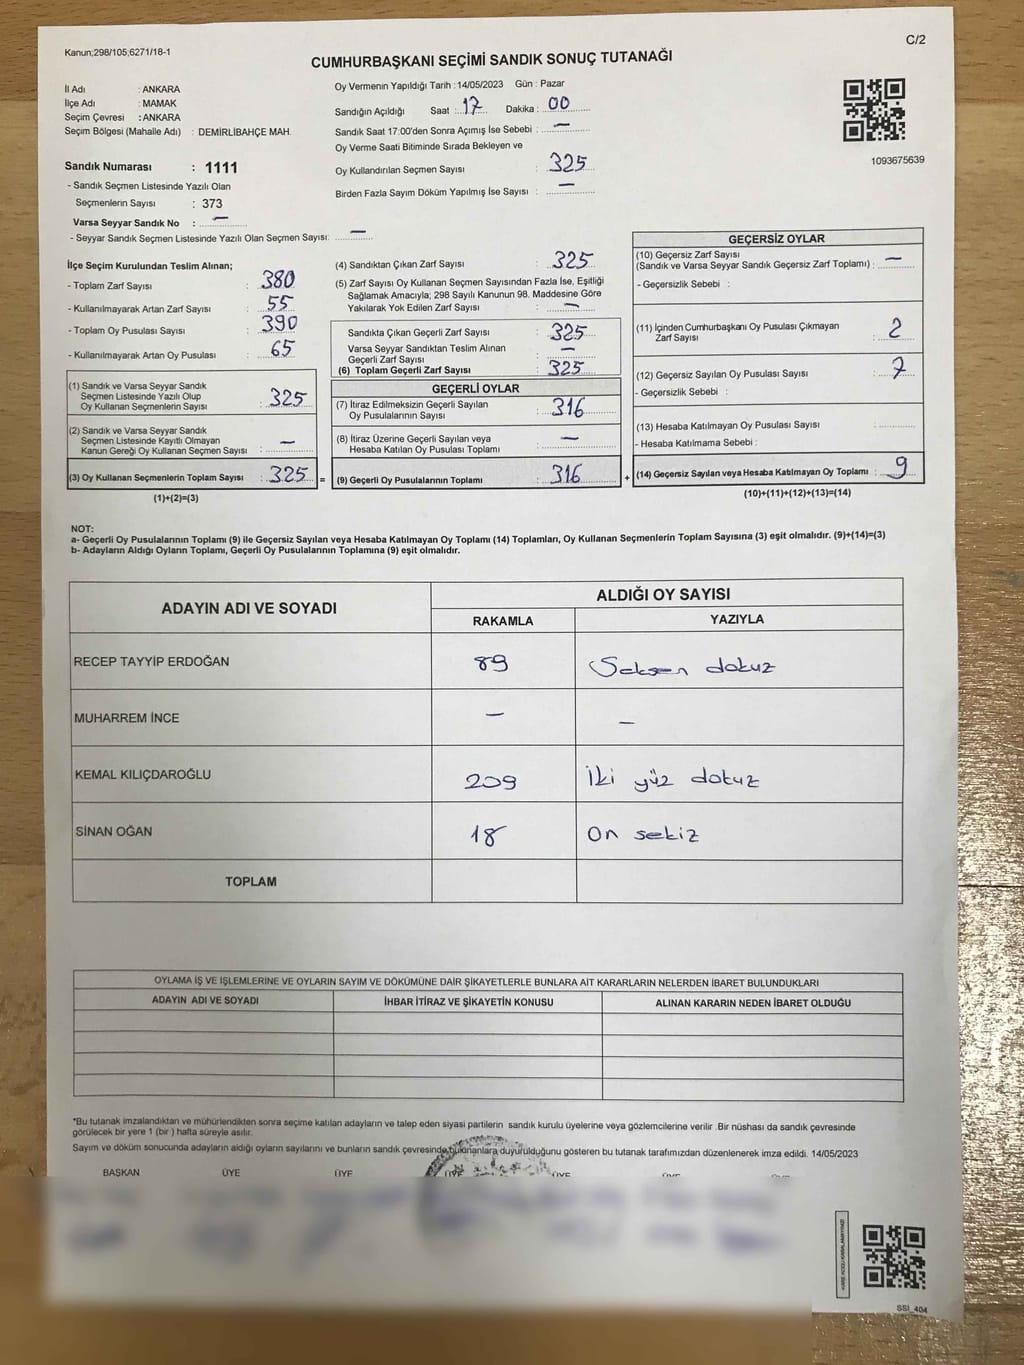 Kanun;298/105;6271/18-1
C/2
CUMHURBAŞKANI SEÇİMİ SANDIK SONUÇ TUTANAĞI
İl Adı : ANKARA
İlçe Adı : MAMAK
Seçim Çevresi : ANKARA
Seçim Bölgesi (Mahalle Adı) : DEMİRLİBAHÇE MAH.
Sandık Numarası : 1111
- Sandık Seçmen Listesinde Yazılı Olan
Seçmenlerin Sayısı : 373
Varsa Seyyar Sandık No : —
- Seyyar Sandık Seçmen Listesinde Yazılı Olan Seçmen Sayısı: —
Oy Vermenin Yapıldığı Tarih :14/05/2023 Gün : Pazar
Sandığın Açıldığı Saat : 17 Dakika : 00
Sandık Saat 17:00'den Sonra Açımış İse Sebebi : —
Oy Verme Saati Bitiminde Sırada Bekleyen ve
Oy Kullandırılan Seçmen Sayısı : 325
Birden Fazla Sayım Döküm Yapılmış İse Sayısı : —
1093675639
İlçe Seçim Kurulundan Teslim Alınan;
- Toplam Zarf Sayısı : 380
- Kullanılmayarak Artan Zarf Sayısı : 55
- Toplam Oy Pusulası Sayısı : 390
- Kullanılmayarak Artan Oy Pusulası : 65
(1) Sandık ve Varsa Seyyar Sandık
Seçmen Listesinde Yazılı Olup
Oy Kullanan Seçmenlerin Sayısı : 325
(2) Sandık ve Varsa Seyyar Sandık
Seçmen Listesinde Kayıtlı Olmayan
Kanun Gereği Oy Kullanan Seçmen Sayısı : —
(3) Oy Kullanan Seçmenlerin Toplam Sayısı : 325 =
(1)+(2)=(3)
(4) Sandıktan Çıkan Zarf Sayısı : 325
(5) Zarf Sayısı Oy Kullanan Seçmen Sayısından Fazla İse, Eşitliği
Sağlamak Amacıyla; 298 Sayılı Kanunun 98. Maddesine Göre
Yakılarak Yok Edilen Zarf Sayısı : —
Sandıkta Çıkan Geçerli Zarf Sayısı : 325
Varsa Seyyar Sandıktan Teslim Alınan
Geçerli Zarf Sayısı : —
(6) Toplam Geçerli Zarf Sayısı : 325
GEÇERLİ OYLAR
(7) İtiraz Edilmeksizin Geçerli Sayılan
Oy Pusulalarının Sayısı : 316
(8) İtiraz Üzerine Geçerli Sayılan veya
Hesaba Katılan Oy Pusulası Toplamı : —
(9) Geçerli Oy Pusulalarının Toplamı : 316 +
GEÇERSİZ OYLAR
(10) Geçersiz Zarf Sayısı
(Sandık ve Varsa Seyyar Sandık Geçersiz Zarf Toplamı) : —
- Geçersizlik Sebebi :
(11) İçinden Cumhurbaşkanı Oy Pusulası Çıkmayan
Zarf Sayısı : 2
(12) Geçersiz Sayılan Oy Pusulası Sayısı : 7
- Geçersizlik Sebebi :
(13) Hesaba Katılmayan Oy Pusulası Sayısı :
- Hesaba Katılmama Sebebi :
(14) Geçersiz Sayılan veya Hesaba Katılmayan Oy Toplamı : 9
(10)+(11)+(12)+(13)=(14)
NOT:
a- Geçerli Oy Pusulalarının Toplamı (9) ile Geçersiz Sayılan veya Hesaba Katılmayan Oy Toplamı (14) Toplamları, Oy Kullanan Seçmenlerin Toplam Sayısına (3) eşit olmalıdır. (9)+(14)=(3)
b- Adayların Aldığı Oyların Toplamı, Geçerli Oy Pusulalarının Toplamına (9) eşit olmalıdır.
ADAYIN ADI VE SOYADI ALDIĞI OY SAYISI
RAKAMLA YAZIYLA
RECEP TAYYİP ERDOĞAN 89 Seksen dokuz
MUHARREM İNCE — —
KEMAL KILIÇDAROĞLU 209 İki yüz dokuz
SİNAN OĞAN 18 On sekiz
TOPLAM
OYLAMA İŞ VE İŞLEMLERİNE VE OYLARIN SAYIM VE DÖKÜMÜNE DAİR ŞİKAYETLERLE BUNLARA AİT KARARLARIN NELERDEN İBARET BULUNDUKLARI
ADAYIN ADI VE SOYADI İHBAR İTİRAZ VE ŞİKAYETİN KONUSU ALINAN KARARIN NEDEN İBARET OLDUĞU
*Bu tutanak imzalandıktan ve mühürlendikten sonra seçime katılan adayların ve talep eden siyasi partilerin sandık kurulu üyelerine veya gözlemcilerine verilir .Bir nüshası da sandık çevresinde
görülecek bir yere 1 (bir ) hafta süreyle asılır.
Sayım ve döküm sonucunda adayların aldığı oyların sayılarını ve bunların sandık çevresinde bulunanlara duyurulduğunu gösteren bu tutanak tarafımızdan düzenlenerek imza edildi. 14/05/2023
BAŞKAN ÜYE ÜYE ÜYE ÜYE
SSI_404